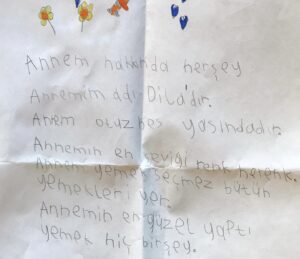 Annem hakkında herşey
Annemim adı Dila'dır.
Anem otuzbeş yaşındadır.
Annemin en seviği renk herenk.
Annem yemek seçmez bütün
yemekleri yer.
Annemin en güzel yaptı
yemek hiç birşey.